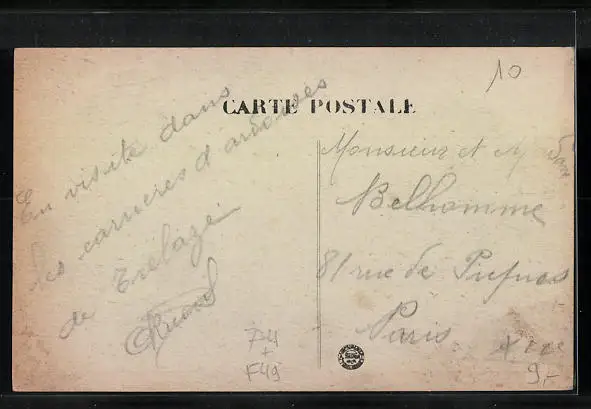 10
CARTE POSTALE
En visite dans
les carrières d'ardoises
de Trélazé.
Monsieur et M
Belhomme
81 rue de Picpus
Paris
P4
+
F49
9,-